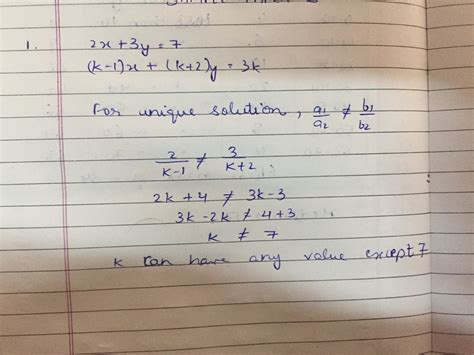 1. 2x + 3y = 7
(k-1)x + (k+2)y = 3k
For unique solution, a1/a2 ≠ b1/b2
2/k-1 ≠ 3/k+2
2k + 4 ≠ 3k - 3
3k - 2k ≠ 4 + 3
k ≠ 7
k can have any value except 7